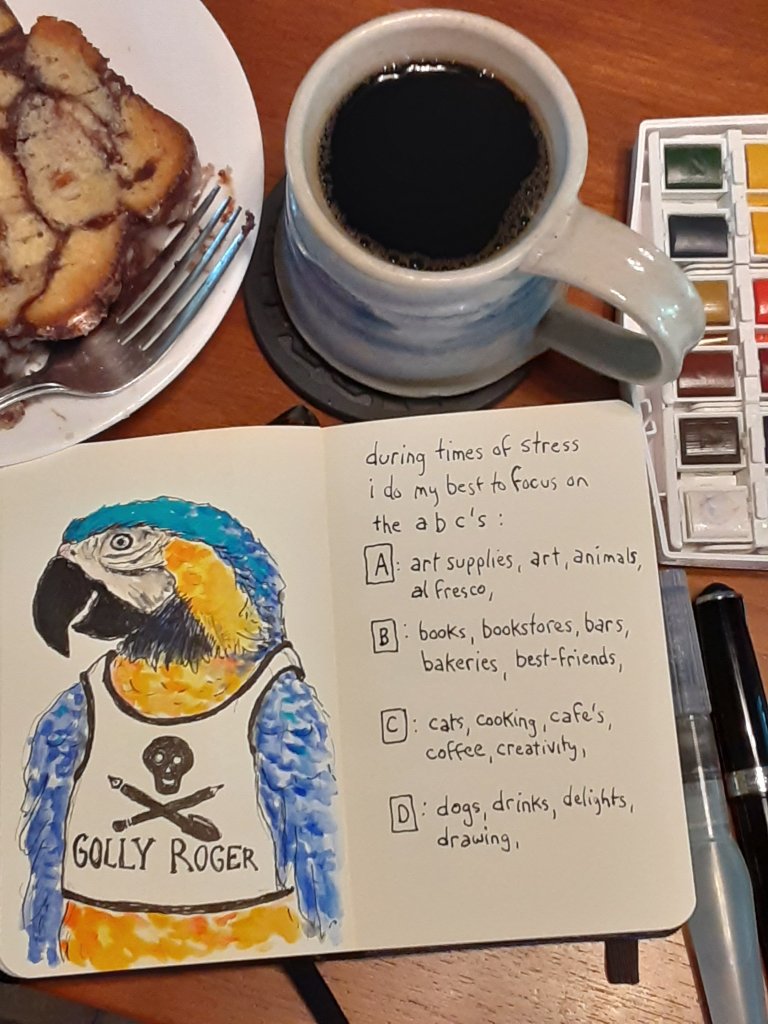 GOLLY ROGER
during times of stress
i do my best to focus on
the a b c's :
A : art supplies, art, animals,
al fresco,
B : books, bookstores, bars,
bakeries, best-friends,
C : cats, cooking, cafe's,
coffee, creativity,
D : dogs, drinks, delights,
drawing,